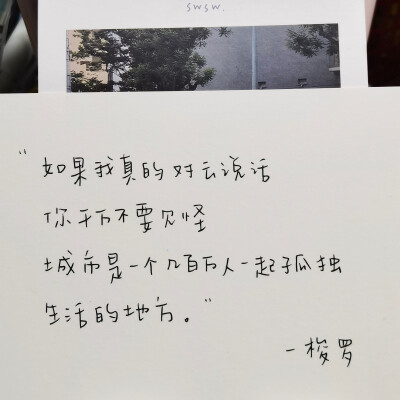 swsw.
“如果我真的对云说话
你千万不要见怪
城市是一个几百万人一起孤独
生活的地方。”
—梭罗